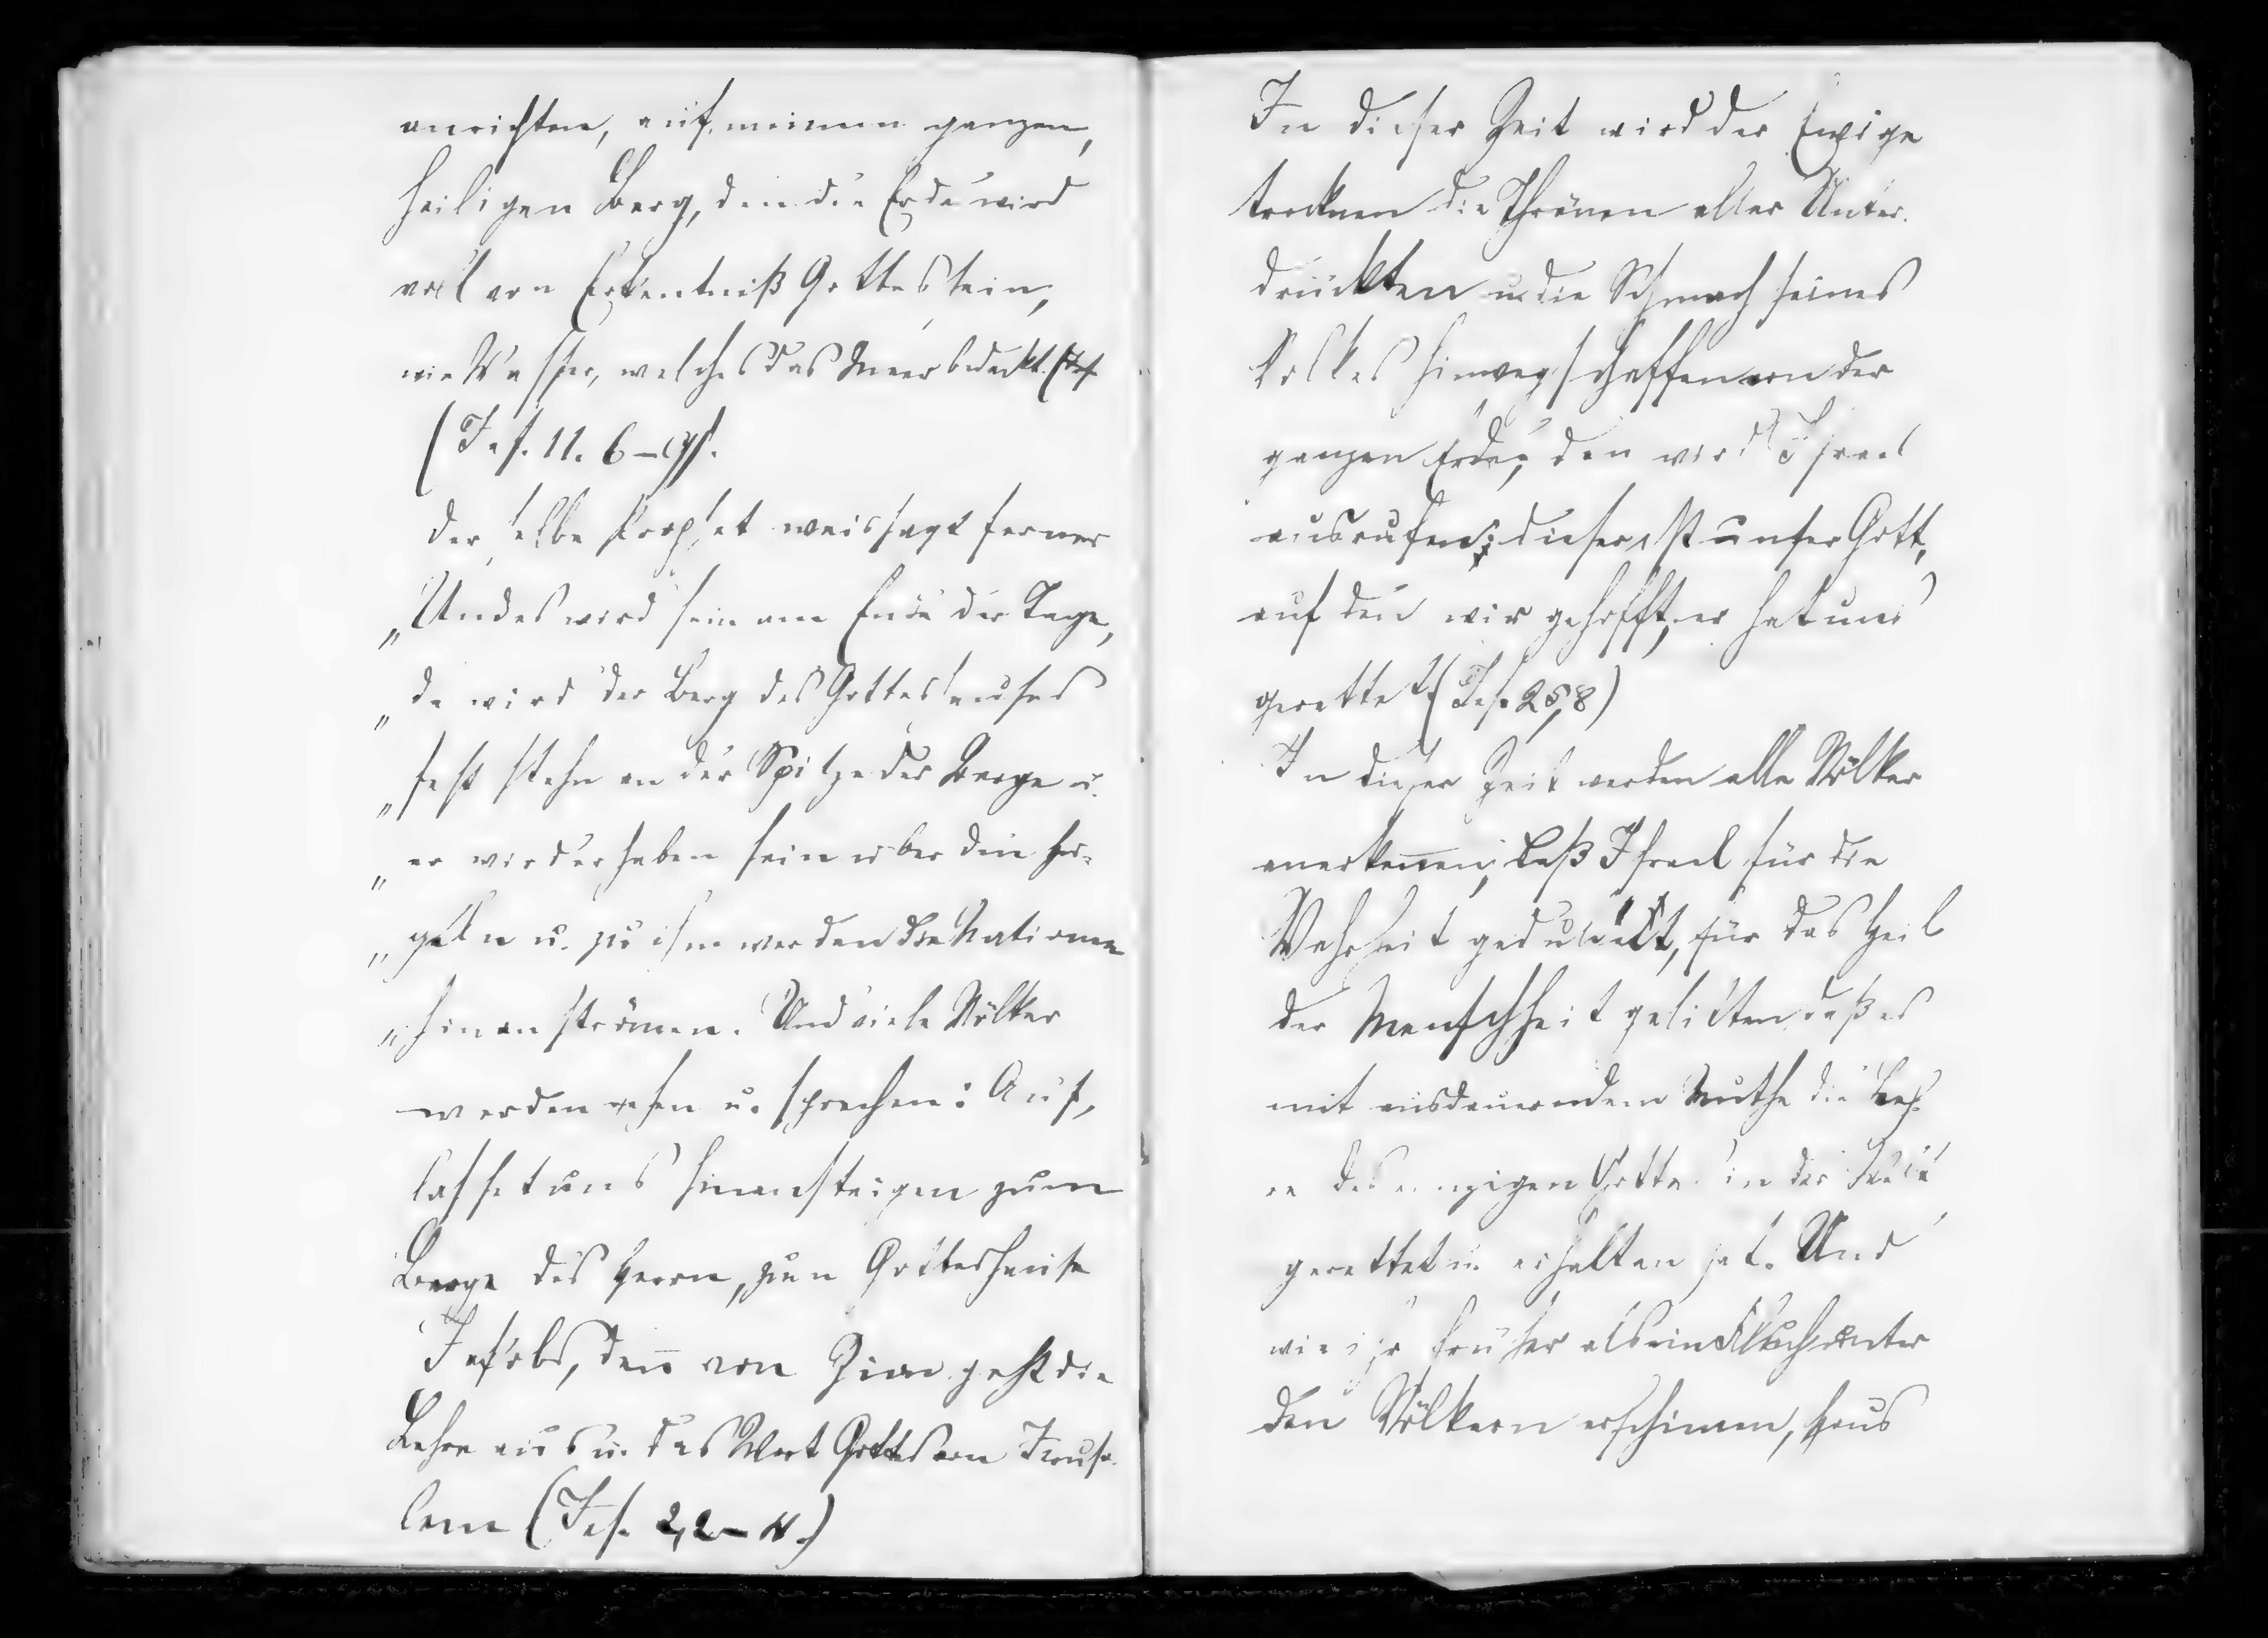 anrichten, auf meinem ganzen,
heiligen Berg, den die Erde wird
voll von Erkentniß Gottes sein,
wie Wasser, welches das Meer bedeckt. (Jes.
(Jes. 11. 6–9).
Derselbe Prophet weissagt ferner
„Und es wird sein am Ende der Tage,
„da wird der Berg des Gotteshauses
„fest stehn an der Spitze der Berge u.
„er wird erhaben sein über den Hü-
„geln u. zu ihm werden die Nationen
„hinan strömen. Und viele Völker
werden gehen u. sprechen: Auf,
lasset uns hinansteigen zum
Berge des Herrn, zum Gotteshause
Jakobs, den̄ von Zion geht die
Lehre aus u. das Wort Gottes von Jerusa-
lem (Jes. 2,2–4.)
In dieser Zeit wird der Ewige
trocknen die Thränen aller Unter-
drückten u. die Schmach seines
Volkes hinwegschaffen von der
ganzen Erde, den wird Israel
ausrufen: dieser ist unser Gott,
auf den wir gehofft, er hat uns
gerettet. (Jes. 25,8)
In dieser Zeit werden alle Völker
anerken̄en, daß Israel für die
Wahrheit geduldet, für das Heil
der Menschheit gelitten, daß es
mit ausdauerndem Muthe die Leh-
re des einzigen Gottes in der
gerettet u. erhalten hat. Und
wie ihr früher als ein Fluch unter
den Völkern erschienen, Haus